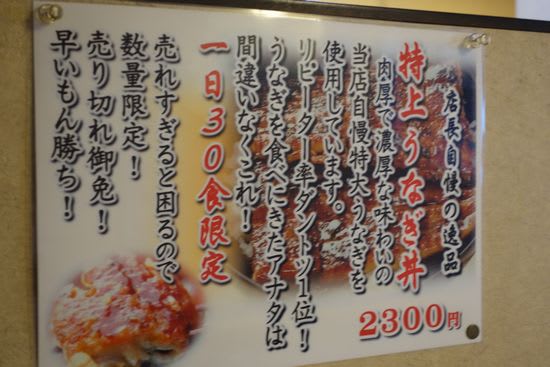 店長自慢の逸品
特上うなぎ丼
肉厚で濃厚な味わいの
当店自慢特大うなぎを
使用しています。
リピーター率ダントツ1位！
うなぎを食べにきたアナタは
間違いなくこれ！
一日30食限定
売れすぎると困るので
数量限定！
売り切れ御免！
早いもん勝ち！
2300円